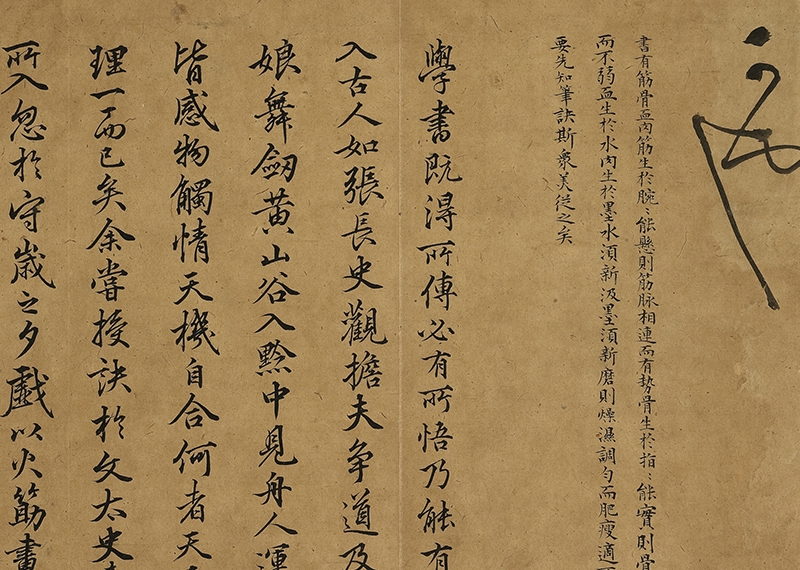 書有筋骨血肉筋生於腕〻能懸則筋脉相連而有勢骨生於指〻能實則骨
而不弱血生於水肉生於墨水湏新汲墨湏新磨則燥濕調勻而肥瘦適
要先知筆訣斯衆美從之矣
學書既淂所傳必有所悟乃能有
入古人如張長史觀擔夫争道及
娘舞劔黄山谷入黔中見舟人
皆感物觸情天機自合何者天
理一而已矣余嘗授訣於文太史
所入忽於守歲之夕戲以火筋畫